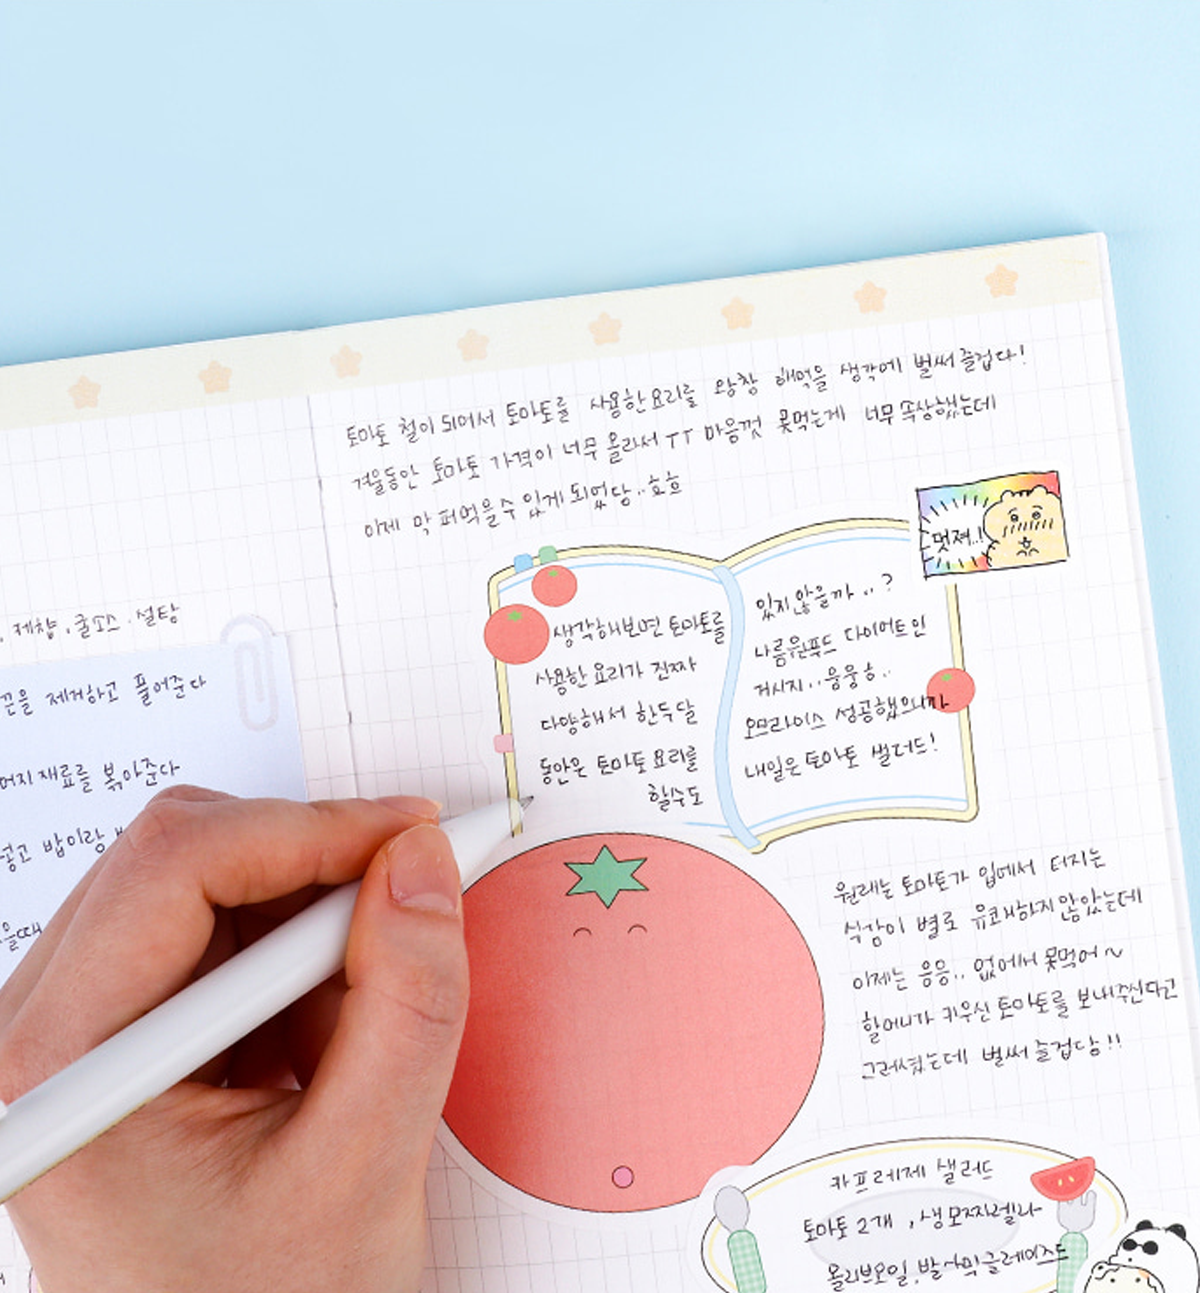 토마토 철이 되어서 토마토를 사용한 요리를 왕창 해먹을 생각에 벌써 즐겁다!
겨울동안 토마토 가격이 너무 올라서 TT 마음껏 못먹는게 너무 속상했는데
이제 막 퍼먹을 수 있게 되었당..효효
멋져..!
생각해보면 토마토를
사용한 요리가 진짜
다양해서 한두달
동안은 토마토 요리를
할수도
있지않을까..?
나름 원푸드 다이어트인
거시지..웅웅ㅎ..
오므라이스 성공했으니까
내일은 토마토 샐러드!
, 케챱, 굴소스, 설탕
끈을 제거하고 풀어준다
머지 재료를 볶아준다
넣고 밥이랑
을때
원래는 토마토가 입에서 터지는
식감이 별로 유쾌하지 않았는데
이제는 응응.. 없어서 못먹어~
할머니가 키우신 토마토를 보내주신다고
그러셨는데 벌써 즐겁당!!
카프레제 샐러드
토마토 2개, 생모짜렐라
올리브오일, 발사믹글레이즈드